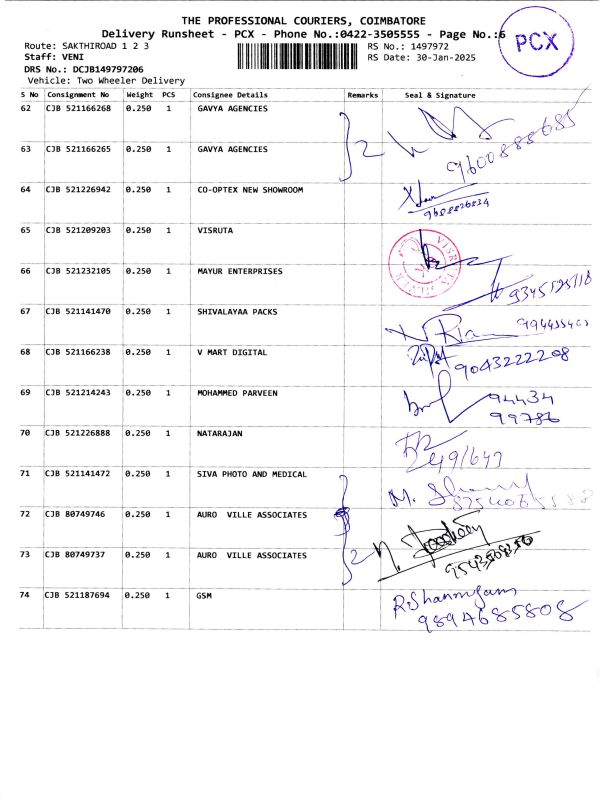 THE PROFESSIONAL COURIERS, COIMBATORE
Delivery Runsheet - PCX - Phone No.:0422-3505555 - Page No.:6
PCX
Route: SAKTHIROAD 1 2 3
RS No.: 1497972
Staff: VENI
RS Date: 30-Jan-2025
DRS No.: DCJB149797206
Vehicle: Two Wheeler Delivery
S No Consignment No Weight PCS Consignee Details Remarks Seal & Signature
62 CJB 521166268 0.250 1 GAVYA AGENCIES
2
9600888685
63 CJB 521166265 0.250 1 GAVYA AGENCIES
64 CJB 521226942 0.250 1 CO-OPTEX NEW SHOWROOM
65 CJB 521209203 0.250 1 VISRUTA
66 CJB 521232105 0.250 1 MAYUR ENTERPRISES
67 CJB 521141470 0.250 1 SHIVALAYAA PACKS
68 CJB 521166238 0.250 1 V MART DIGITAL
9043222208
69 CJB 521214243 0.250 1 MOHAMMED PARVEEN
94434
99786
70 CJB 521226888 0.250 1 NATARAJAN
71 CJB 521141472 0.250 1 SIVA PHOTO AND MEDICAL
72 CJB 80749746 0.250 1 AURO VILLE ASSOCIATES
2
73 CJB 80749737 0.250 1 AURO VILLE ASSOCIATES
74 CJB 521187694 0.250 1 GSM
R.Shanmugam
9894685808